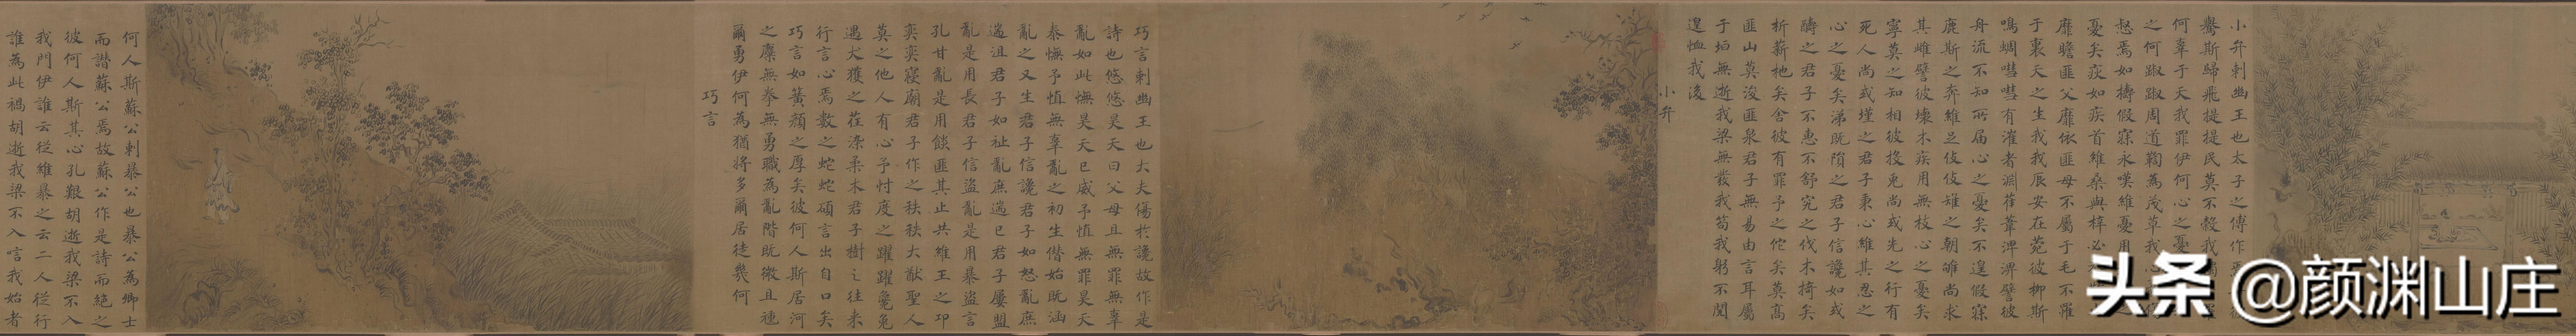 小弁刺幽王也太子之傅作
鸒斯歸飛提提民莫不穀我
何辜于天我罪伊何心之憂
之何踧踧周道鞫為茂草我心
惄焉如擣假寐永嘆維憂用
憂矣疢如疾首維桑與梓必
靡瞻匪父靡依匪母不屬于毛不罹
于裏天之生我我辰安在菀彼柳斯
鳴蜩嘒嘒有漼者淵萑葦淠淠譬彼
舟流不知所屆心之憂矣不遑假寐
鹿斯之奔維足伎伎雉之朝雊尚求
其雌譬彼壞木疾用無枝心之憂矣
寧莫之知相彼投兔尚或先之行有
死人尚或墐之君子秉心維其忍之
心之憂矣涕既隕之君子信讒如或
醻之君子不惠不舒究之伐木掎矣
析薪杝矣舍彼有罪予之佗矣莫高
匪山莫浚匪泉君子無易由言耳屬
于垣無逝我梁無發我笱我躬不閱
遑恤我後
小弁
巧言刺幽王也大夫傷於讒故作是
詩也悠悠昊天曰父母且無罪無辜
亂如此憮昊天已威予慎無罪昊天
泰憮予慎無辜亂之初生僭始既涵
亂之又生君子信讒君子如怒亂庶
遄沮君子如祉亂庶遄已君子屢盟
亂是用長君子信盜亂是用暴盜言
孔甘亂是用餤匪其止共維王之邛
奕奕寢廟君子作之秩秩大猷聖人
莫之他人有心予忖度之躍躍毚兔
遇犬獲之荏染柔木君子樹之往來
行言心焉數之蛇蛇碩言出自口矣
巧言如簧顏之厚矣彼何人斯居河
之麋無拳無勇職為亂階既微且尰
爾勇伊何為猶將多爾居徒幾何
巧言
何人斯蘇公刺暴公也暴公為卿士
而譖蘇公焉故蘇公作是詩而絕之
彼何人斯其心孔艱胡逝我梁不入
我門伊誰云從維暴之云二人從行
誰為此禍胡逝我梁不入唁我始者
头条 @颜渊山庄